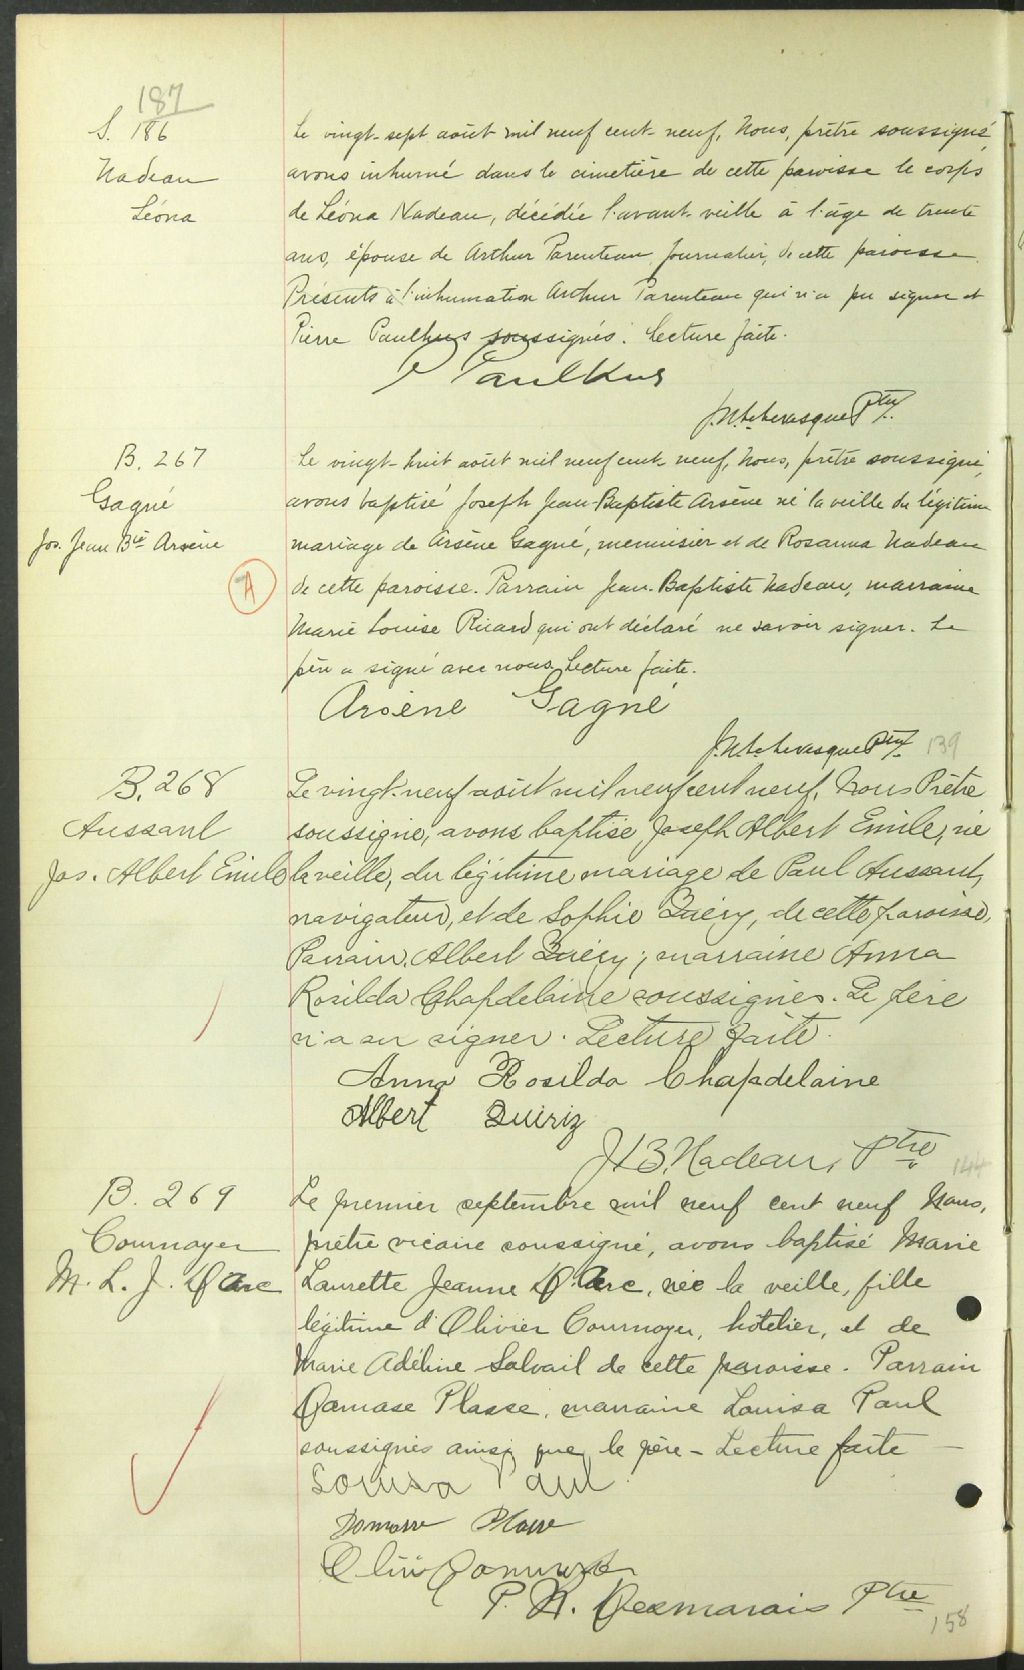 187
S. 186
Nadeau
Léona
Le vingt-sept août mil neuf cent neuf, Nous, prêtre soussigné,
avons inhumé dans le cimetière de cette paroisse le corps
de Léona Nadeau, décédée l'avant-veille à l'âge de trente
ans, épouse de Arthur Parenteau, journalier, de cette paroisse.
Présents à l'inhumation Arthur Parenteau qui n'a pu signer et
Pierre Paulhus soussignés. Lecture faite.
P Paulhus
Ptre
B. 267
Gagné
Jos. Jean Bte Arsène
A
Le vingt-huit août mil neuf cent neuf, Nous, prêtre soussigné,
avons baptisé Joseph Jean-Baptiste Arsène né la veille du légitime
mariage de Arsène Gagné, menuisier et de Rosanna Nadeau
de cette paroisse. Parrain Jean-Baptiste Nadeau, marraine
Marie Louise Ricard qui ont déclaré ne savoir signer. Le
père a signé avec nous. Lecture faite.
Arsène Gagné
Ptre
139
B. 268
Aussant
Jos. Albert Emile
Le vingt-neuf août mil neuf cent neuf, Nous Prêtre
soussigné, avons baptisé Joseph Albert Emile, né
la veille, du légitime mariage de Paul Aussant,
navigateur, et de Sophie de cette paroisse.
Parrain, Albert ; marraine Anna
Rosilda Chapdelaine soussignés. Le père
n'a su signer. Lecture faite.
Anna Rosilda Chapdelaine
Albert
J.B. Nadeau, Ptre
144
B. 269
Cournoyer
M. L. J. D'Arc
Le premier septembre mil neuf cent neuf Nous,
prêtre vicaire soussigné, avons baptisé Marie
Laurette Jeanne D'Arc, née la veille, fille
légitime d'Olivier Cournoyer, hôtelier, et de
Marie Adéline Salvail de cette paroisse. Parrain
Damase Plasse, marraine Louisa Paul
soussignés ainsi que le père - Lecture faite
Louisa Paul
Damase Plasse
Desmarais Ptre
158